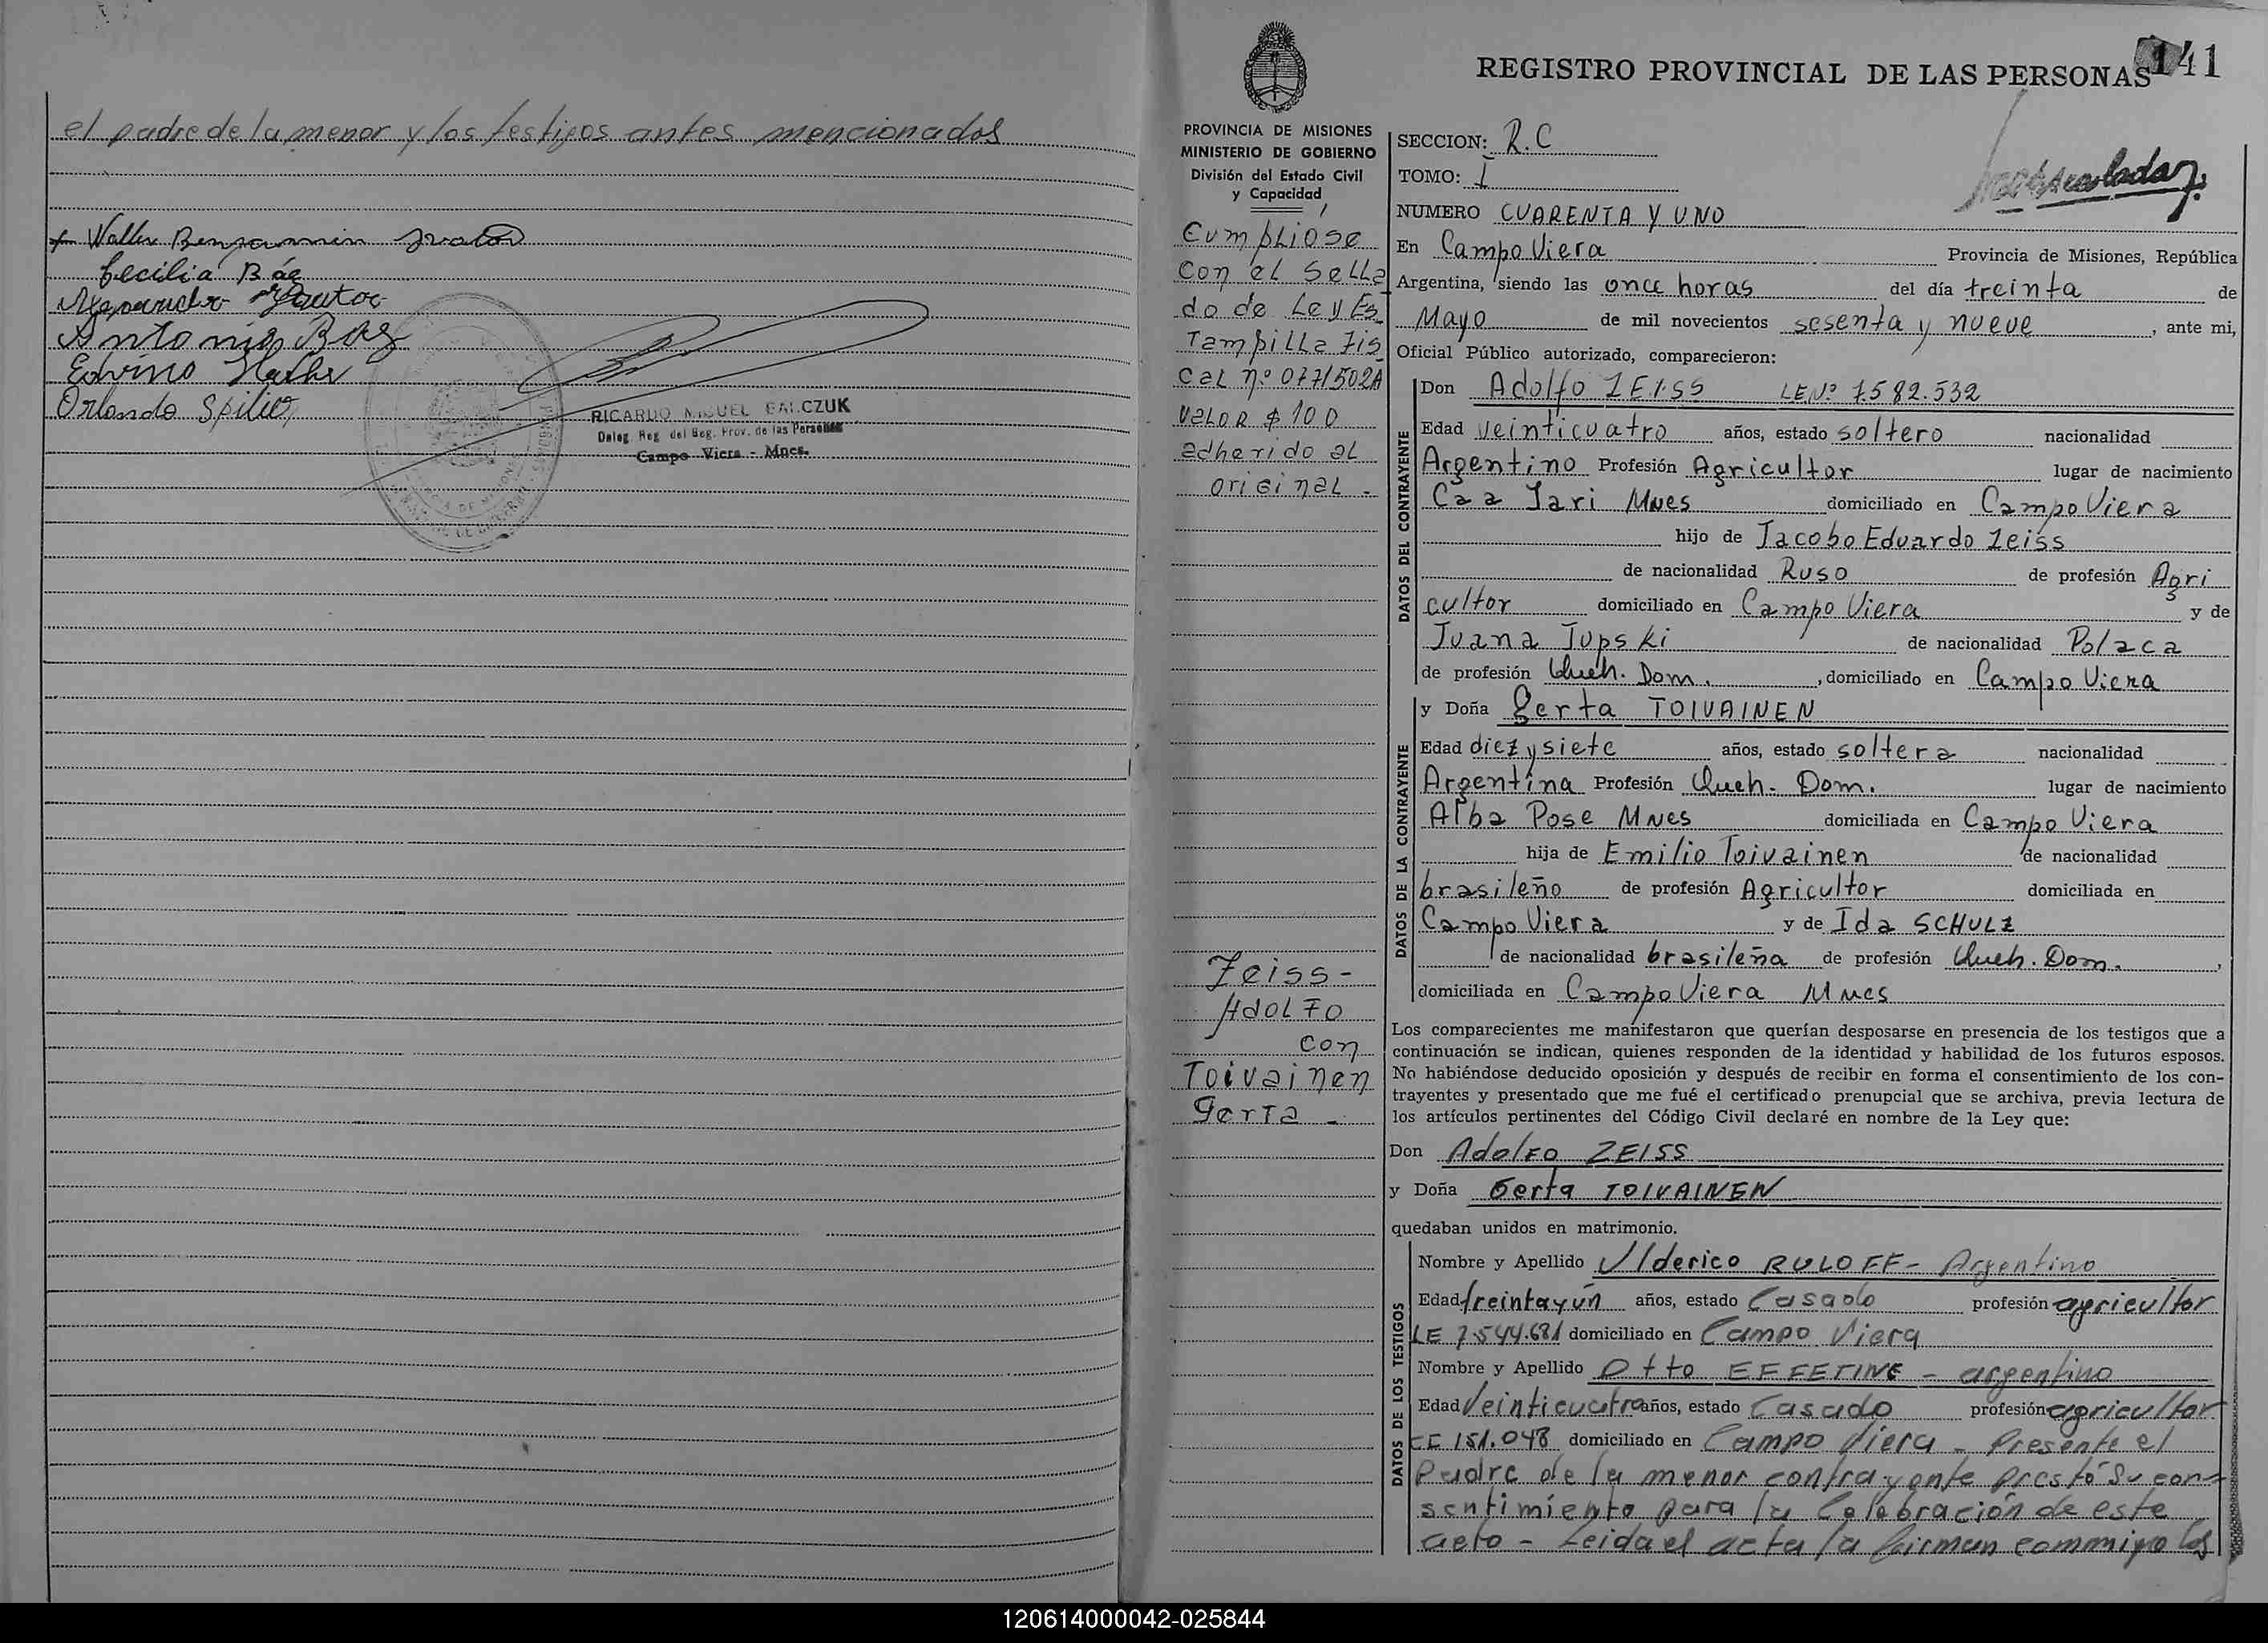 el padre de la menor y los testigos antes mencionados
Walter Benjamin
Cecilia Báez
Antonio Baz
Edvino
Orlando Spilier
RICARDO MIGUEL GALCZUK
Deleg. Reg. del Reg. Prov. de las Personas
Campo Viera - Mnes.
REGISTRO PROVINCIAL DE LAS PERSONAS 141
PROVINCIA DE MISIONES
MINISTERIO DE GOBIERNO
División del Estado Civil
y Capacidad
Cumplióse
con el sella
do de Ley Es
Tampilla Fis
cal nº 0771502A
valor $ 100
adherido al
original -
Zeiss-
Adolfo
con
Toivainen
Gerta -
SECCION: R.C
TOMO: I
NUMERO CUARENTA Y UNO
En Campo Viera Provincia de Misiones, República
Argentina, siendo las once horas del día treinta de
Mayo de mil novecientos sesenta y nueve, ante mi,
Oficial Público autorizado, comparecieron:
DATOS DEL CONTRAYENTE
Don Adolfo ZEISS LE.Nº 7.582.532
Edad veinticuatro años, estado soltero nacionalidad
Argentino Profesión Agricultor lugar de nacimiento
Caa Yari Mnes domiciliado en Campo Viera
hijo de Jacobo Eduardo Zeiss
de nacionalidad Ruso de profesión Agri
cultor domiciliado en Campo Viera y de
Juana Jupski de nacionalidad Polaca
de profesión Queh. Dom., domiciliado en Campo Viera
DATOS DE LA CONTRAYENTE
y Doña Gerta TOIVAINEN
Edad diez y siete años, estado soltera nacionalidad
Argentina Profesión Queh. Dom. lugar de nacimiento
Alba Pose Mnes domiciliada en Campo Viera
hija de Emilio Toivainen de nacionalidad
brasileño de profesión Agricultor domiciliada en
Campo Viera y de Ida SCHULZ
de nacionalidad brasileña de profesión Queh. Dom.,
domiciliada en Campo Viera Mnes
Los comparecientes me manifestaron que querían desposarse en presencia de los testigos que a
continuación se indican, quienes responden de la identidad y habilidad de los futuros esposos.
No habiéndose deducido oposición y después de recibir en forma el consentimiento de los con-
trayentes y presentado que me fué el certificado prenupcial que se archiva, previa lectura de
los artículos pertinentes del Código Civil declaré en nombre de la Ley que:
Don Adolfo ZEISS
y Doña Gerta TOIVAINEN
quedaban unidos en matrimonio.
DATOS DE LOS TESTIGOS
Nombre y Apellido Ulderico RULOFF - Argentino
Edad treinta y un años, estado Casado profesión agricultor
LE 7.544.681 domiciliado en Campo Viera
Nombre y Apellido Otto EFFETINE - argentino
Edad Veinticuatro años, estado Casado profesión agricultor
CE 151.048 domiciliado en Campo Viera - Presente el
Padre de la menor contrayente prestó su con-
sentimiento para la Celebración de este
acto - Leida el acta la firman conmigo los
120614000042-025844